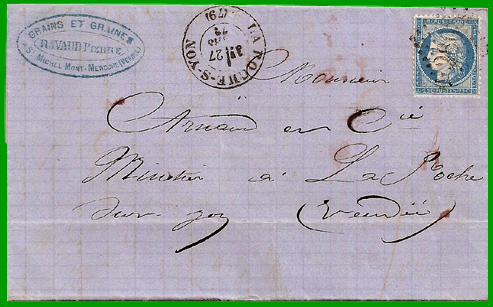 GRAINS ET GRAINES
RAVAUD PIERRE
A ST MICHEL MONT-MERCURE (VENDÉE)
LA ROCHE-S-YON
27
73
(79)
Monsieur
Arnaud en Cie
Minotier à La Roche
sur yon (Vendée)